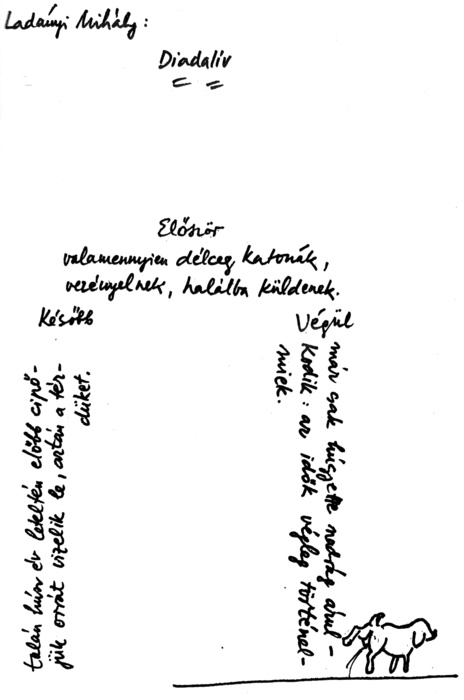 Ladányi Mihály:
Diadalív
Először
valamennyien délceg katonák,
vezényelnek, halálba küldenek.
Később
talán húsz év leteltén előbb cipő-
jük orrát vizelik le, aztán a tér-
düket.
Végül
már csak húgyette nadrág árul-
kodik: az idők végleg történel-
miek.